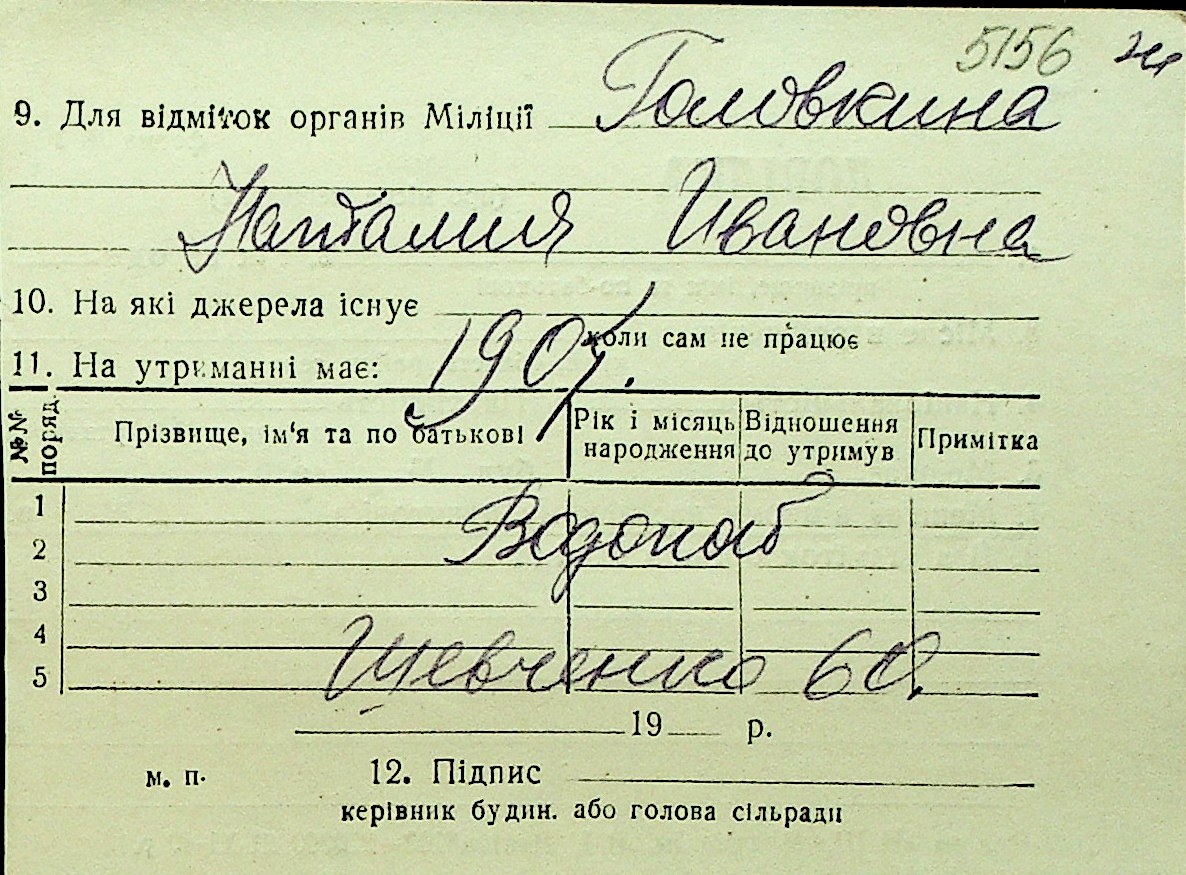 5156
9. Для відміток органів Міліції Головкина
Наталия Ивановна
10. На які джерела існує
коли сам не працює
11. На утриманні має: 1907.
№№ поряд.
Прізвище, ім'я та по батькові
Рік і місяць народження
Відношення до утримув
Примітка
1
2 Водопой
3
4
5 Шевченко 60.
19 р.
м. п. 12. Підпис
керівник будин. або голова сільради